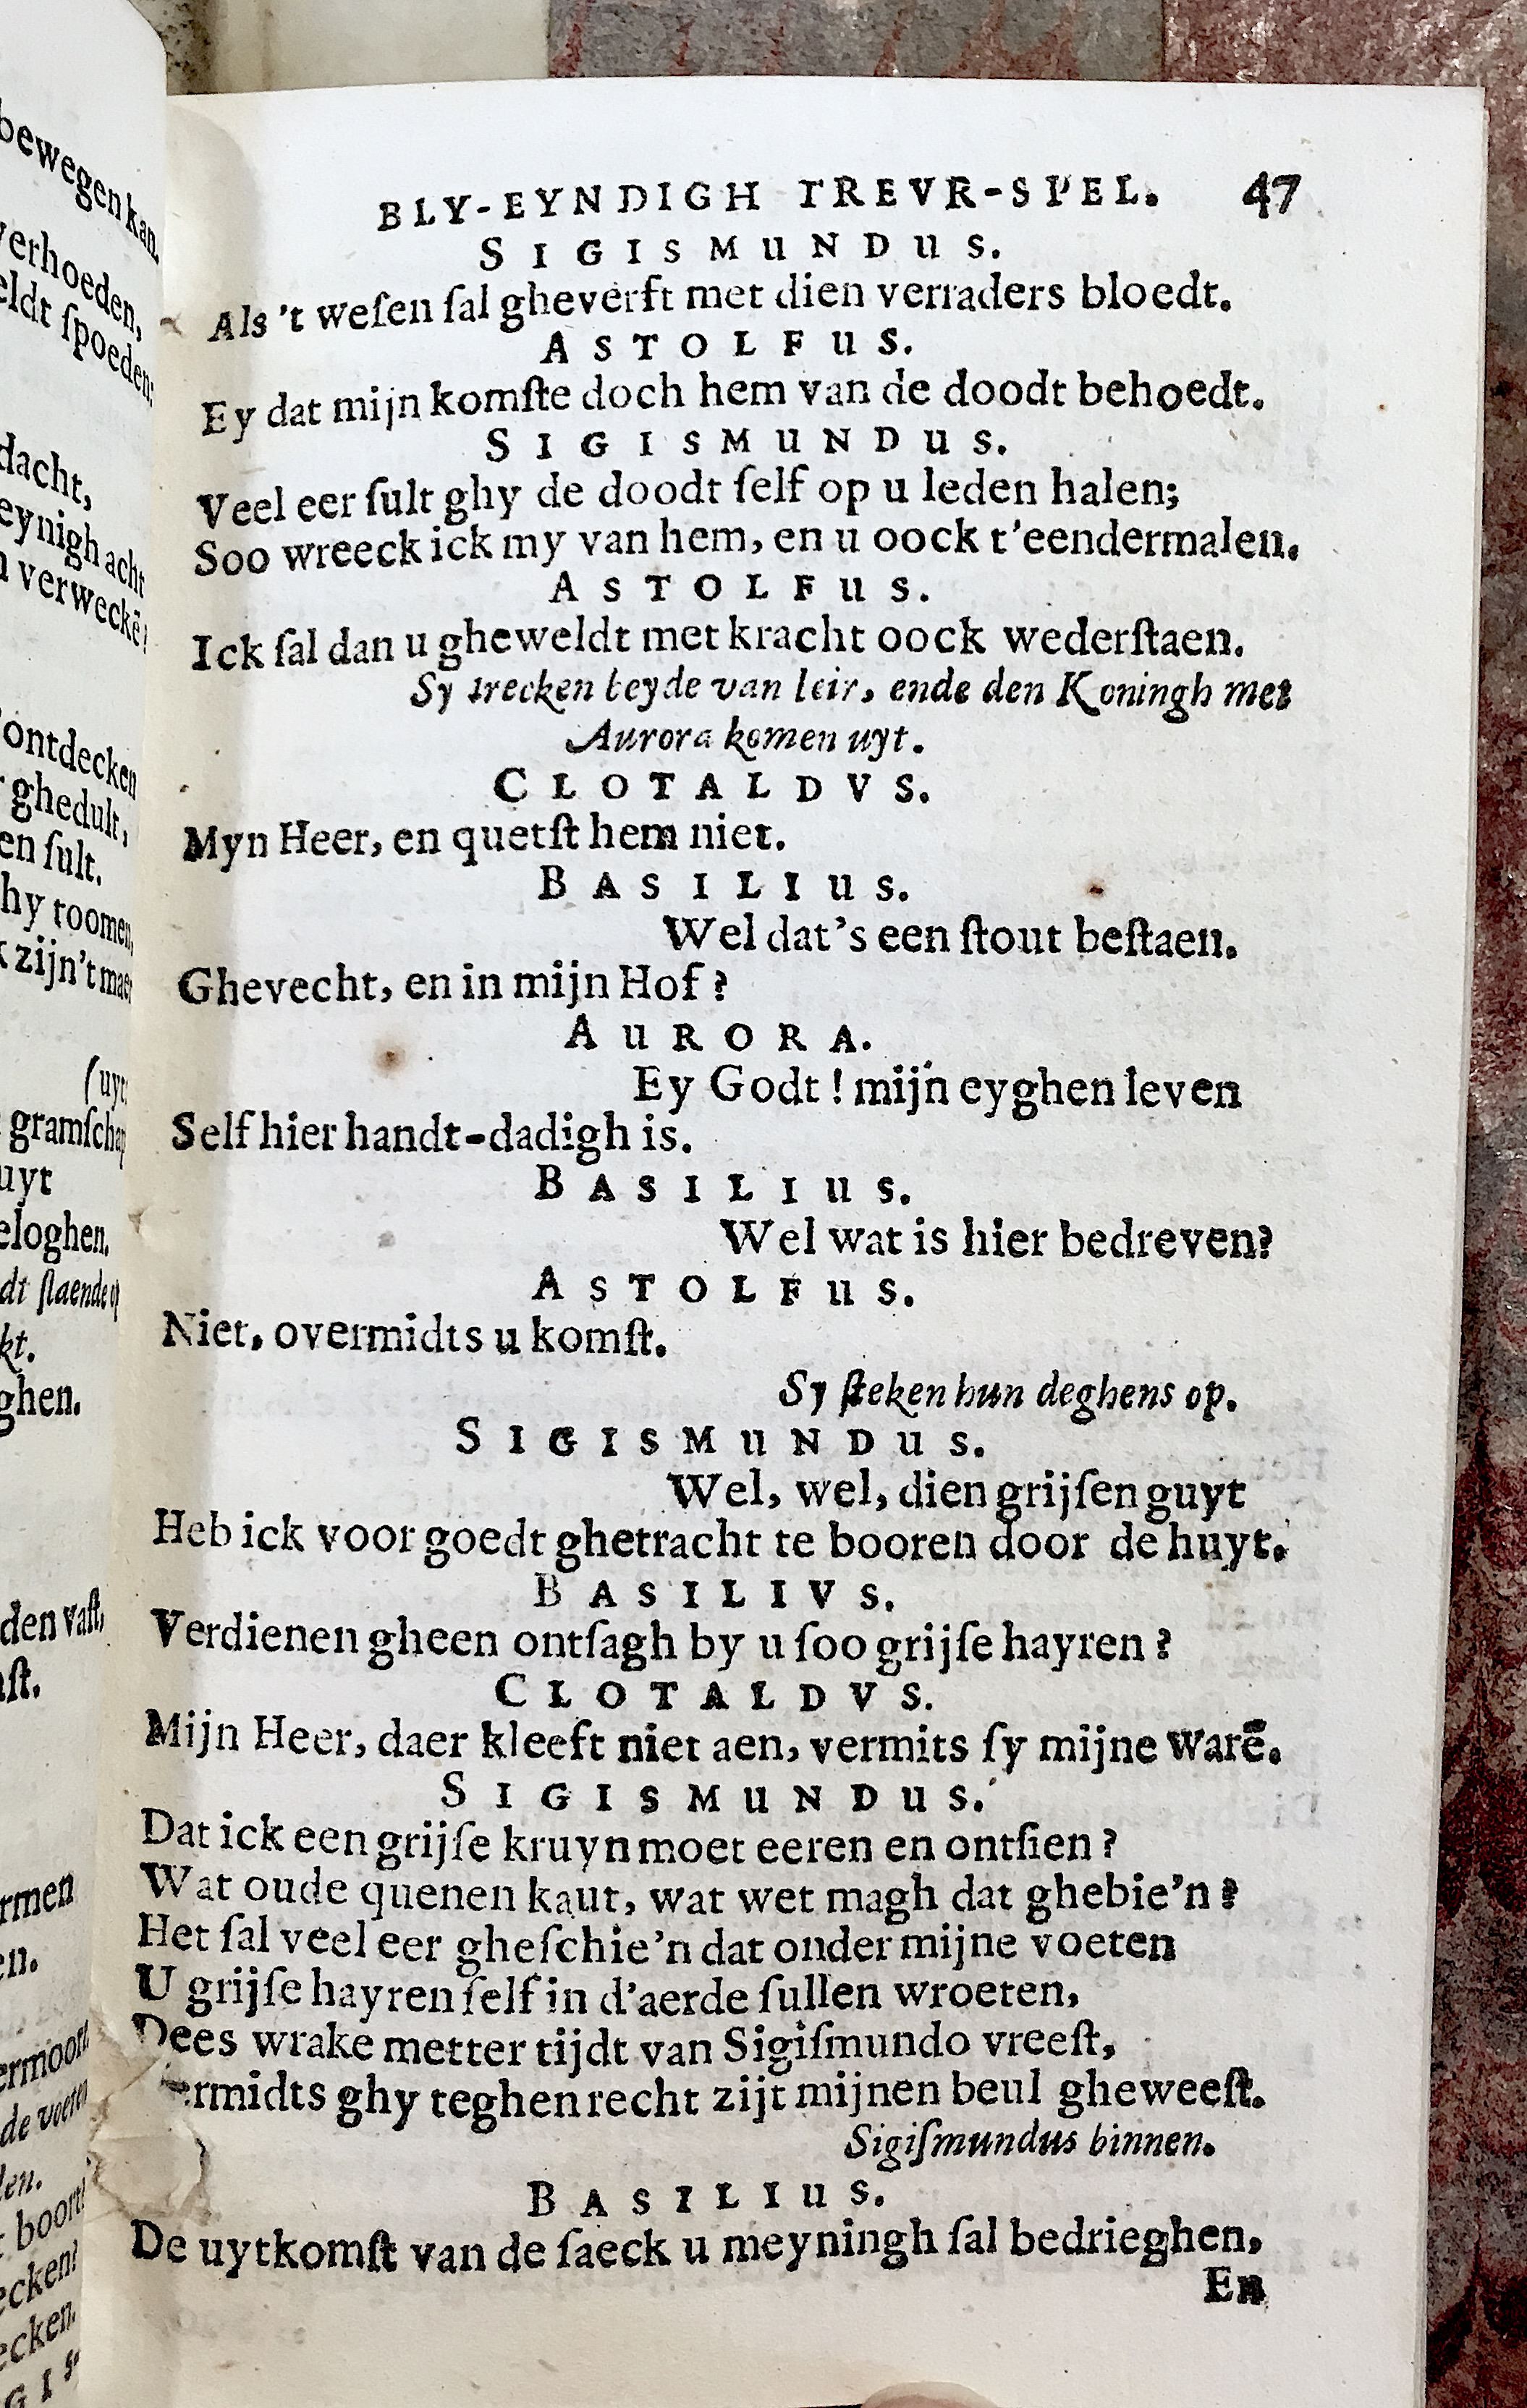 BLY-EYNDIGH TREVR-SPEL. 47
SIGISMUNDUS.
Als 't weſen ſal gheverft met dien verraders bloedt.
ASTOLFUS.
Ey dat mijn komſte doch hem van de doodt behoedt.
SIGISMUNDUS.
Veel eer ſult ghy de doodt ſelf op u leden halen;
Soo wreeck ick my van hem, en u oock t'eendermalen.
ASTOLFUS.
Ick ſal dan u gheweldt met kracht oock wederſtaen.
Sy trecken beyde van leir, ende den Koningh met
Aurora komen uyt.
CLOTALDVS.
Myn Heer, en quetſt hem niet.
BASILIUS.
Wel dat's een ſtout beſtaen.
Ghevecht, en in mijn Hof?
AURORA.
Ey Godt! mijn eyghen leven
Self hier handt-dadigh is.
BASILIUS.
Wel wat is hier bedreven?
ASTOLFUS.
Niet, overmidts u komſt.
Sy ſteken hun deghens op.
SIGISMUNDUS.
Wel, wel, dien grijſen guyt
Heb ick voor goedt ghetracht te booren door de huyt.
BASILIVS.
Verdienen gheen ontſagh by u ſoo grijſe hayren?
CLOTALDVS.
Mijn Heer, daer kleeft niet aen, vermits ſy mijne warē.
SIGISMUNDUS.
Dat ick een grijſe kruyn moet eeren en ontſien?
Wat oude quenen kaut, wat wet magh dat ghebie'n?
Het ſal veel eer gheſchie'n dat onder mijne voeten
U grijſe hayren ſelf in d'aerde ſullen wroeten,
Dees wrake metter tijdt van Sigiſmundo vreeſt,
ermidts ghy teghen recht zijt mijnen beul gheweeſt.
Sigiſmundus binnen.
BASILIUS.
De uytkomſt van de ſaeck u meyningh ſal bedrieghen,
En
bewegen kan.
verhoeden,
eldt ſpoeden:
dacht,
eynigh acht
verweckē
ontdecken
ghedult,
en ſult.
hy toomen,
zijn't maer
(uyt
gramſchap
uyt
eloghen.
dt ſtaende op
kt.
ghen.
den vaſt,
ſt.
rmen
en.
ermoort
de voeten
en.
boort
ecken
ecken.
GIS